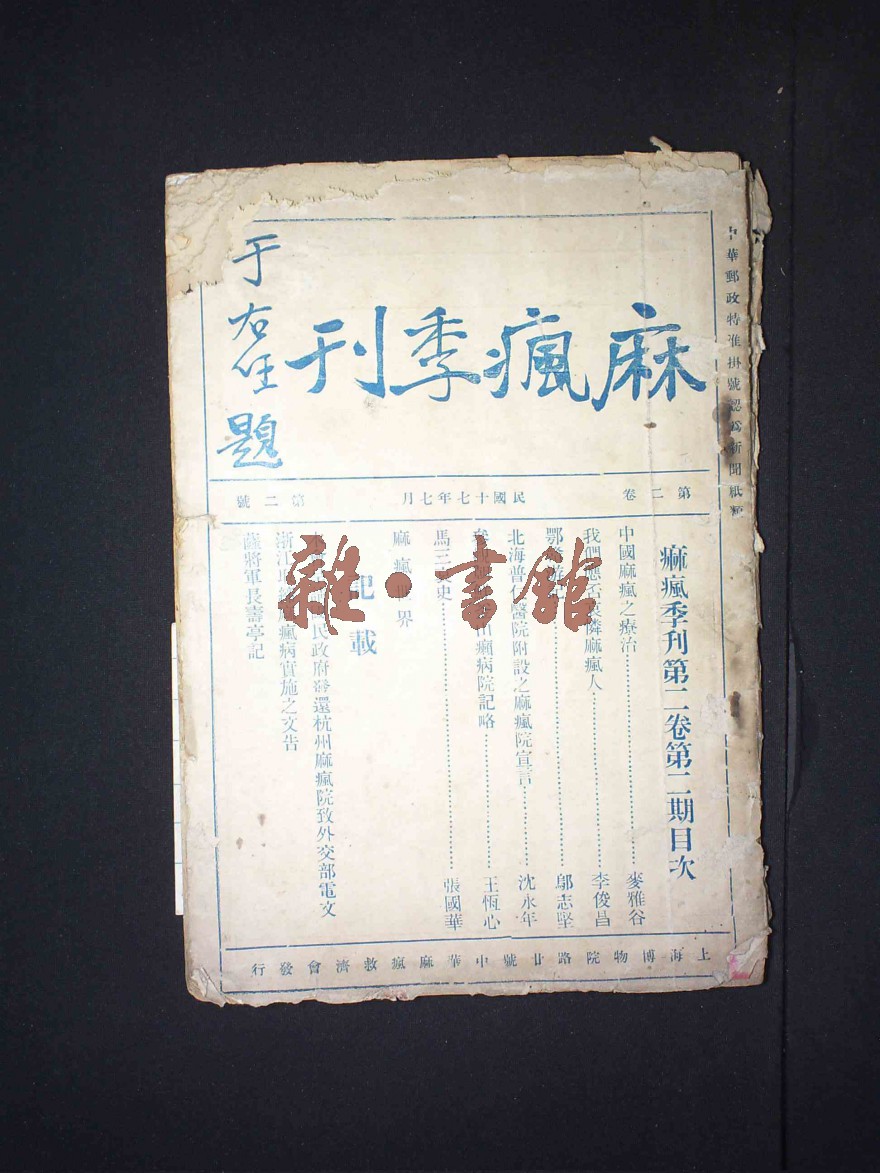 中華郵政特准掛號認爲新聞紙類
麻瘋季刊
于右任題
第二卷
民國十七年七月
第二號
痲瘋季刊第二卷第二期目次
中國麻瘋之療治 麥雅谷
我們應否哀憐麻瘋人 李俊昌
鄔志堅
北海普仁醫院附設之麻瘋院宣言 沈永年
癩病院記略 王恆心
馬三史 張國華
麻瘋世界
記載
民政府發還杭州麻瘋院致外交部電文
浙江 瘋病實施之文告
薩將軍長壽亭記
上海博物院路廿號中華麻瘋救濟會發行
雜·書館